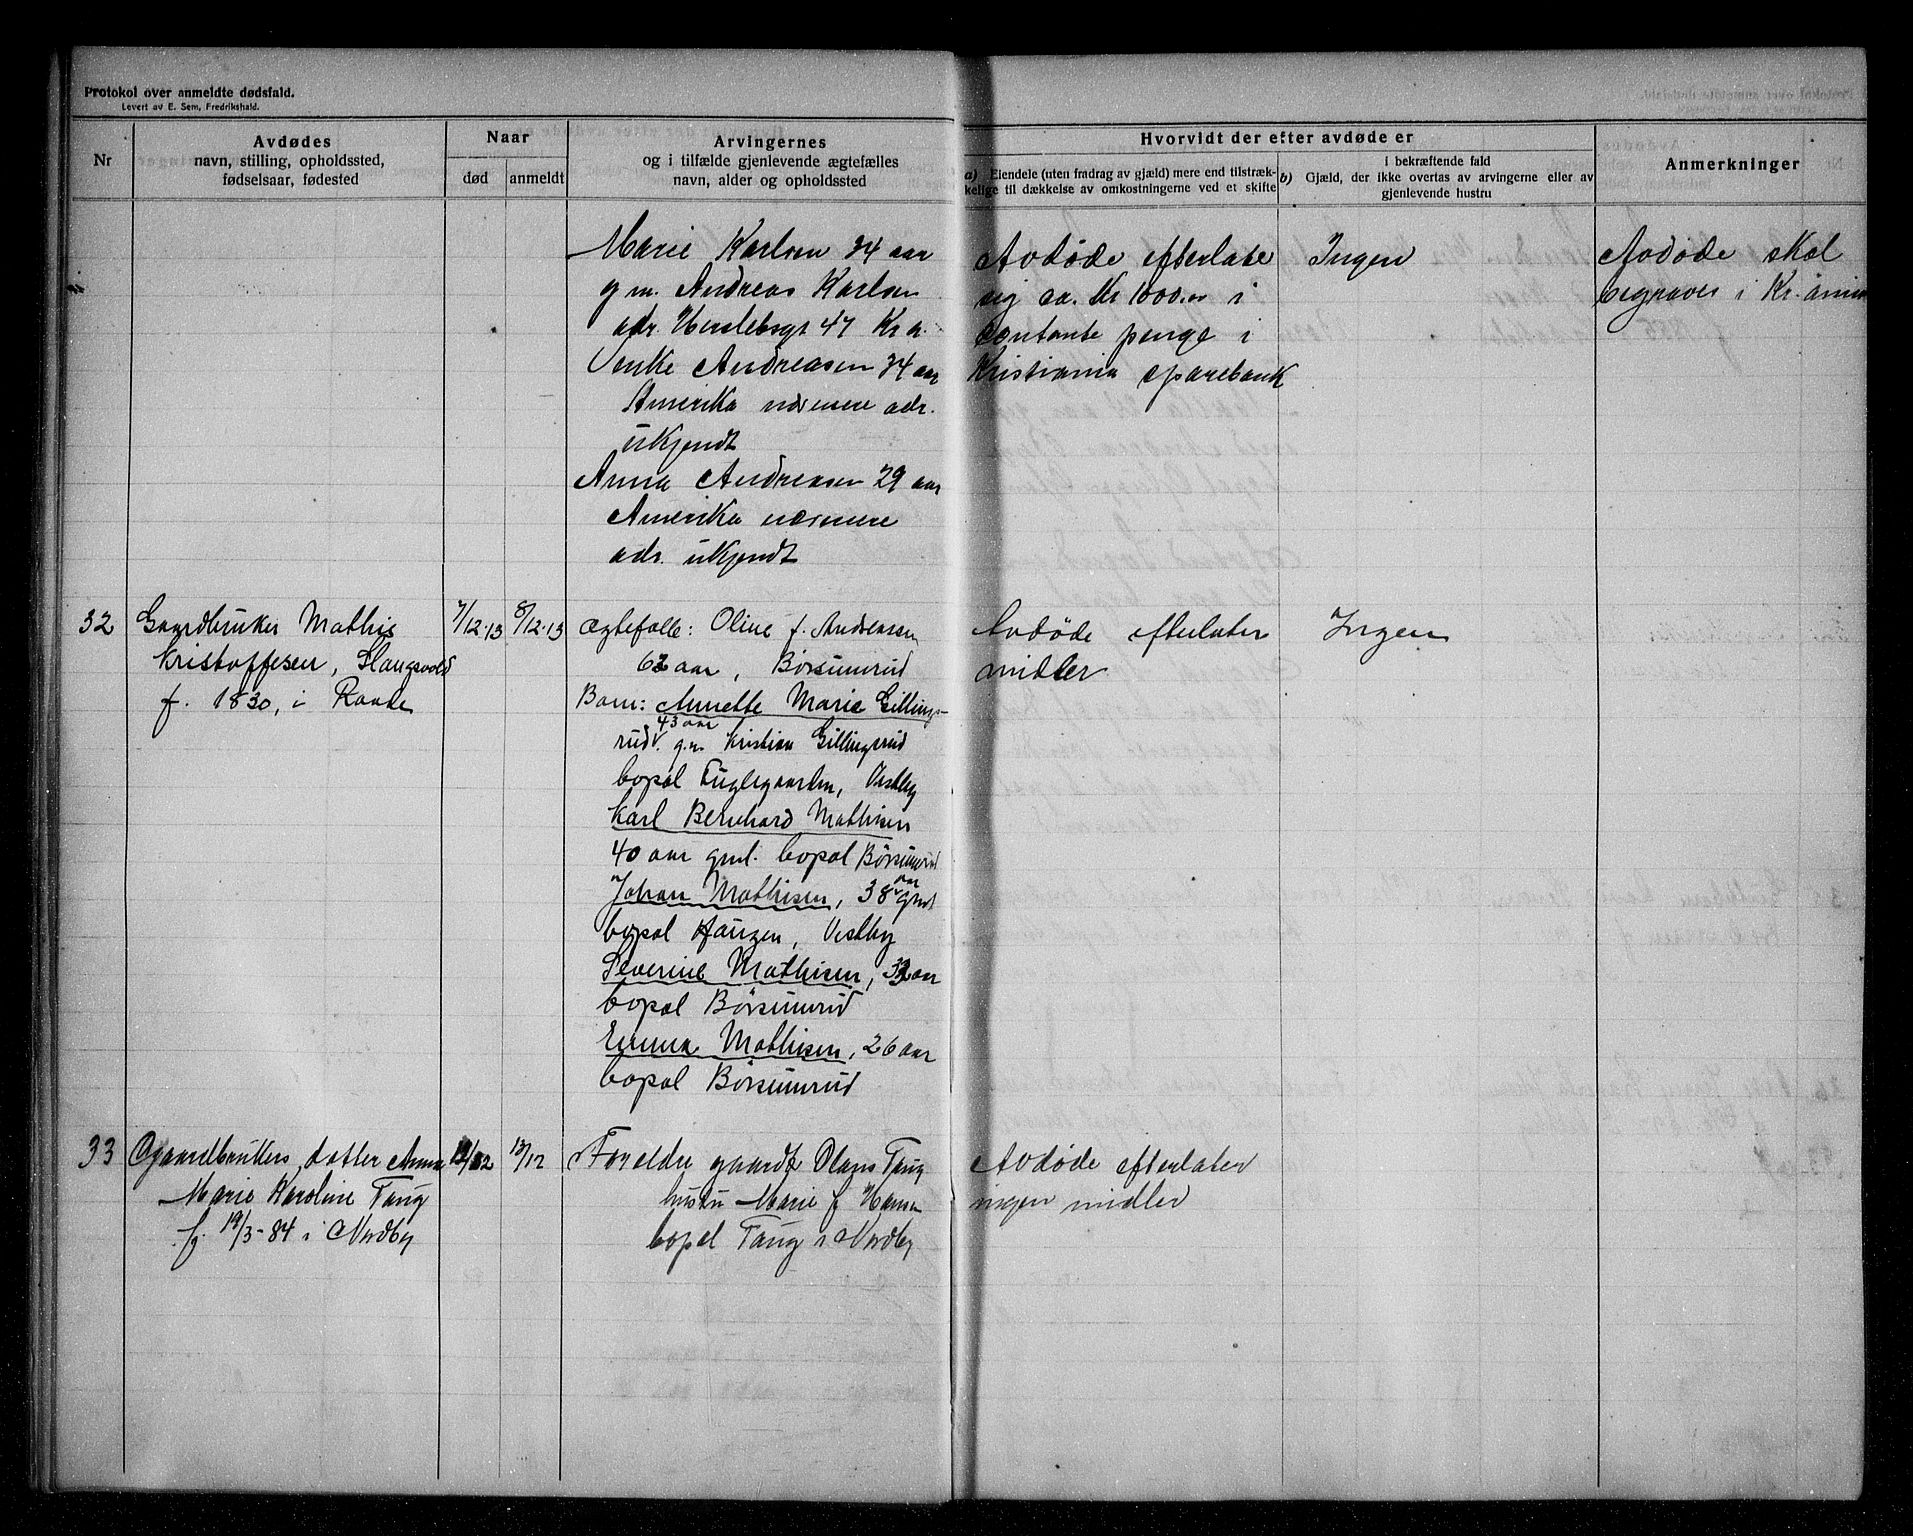 Protokol over anmeldte dødsfald.
Levert av E. Sem, Fredrikshald.
Nr
Avdødes
navn, stilling, opholdssted,
fødselsaar, fødested
Naar
død
anmeldt
Arvingernes
og i tilfælde gjenlevende ægtefælles
navn, alder og opholdssted
Hvorvidt der efter avdøde er
a) Eiendele (uten fradrag av gjæld) mere end tilstræk-
kelige til dækkelse av omkostningerne ved et skifte
b) i bekræftende fald
Gjæld, der ikke overtas av arvingerne eller av
gjenlevende hustru
Anmerkninger
Marie Karlsen 34 aar
g m. Andreas Karlsen
adr. Herslebsgt 47 Kr a.
Venke Andreasen 34 aar
Amerika nærmere adr.
ukjendt
Anna Andreasen 29 aar
Amerika nærmere
adr. ukjendt
Avdøde efterlater
sig ca. Kr 1000.00 i
contante penge i
Kristiania sparebank
Ingen
Avdøde skal
begraves i Kr.ania
32
Gaardbruker Mathis
Kristoffersen, Slangsvold
f. 1830, i Raade
7/12.13
8/12.13
Ægtefolle: Oline f. Andreassen
62 aar, Børsumrud
Barn: Annette Marie Gillings-
43 aar
rud g.m. Kristian Gillingsrud
bopæl Fuglegaarden, Vestby
Karl Bernhard Mathisen
40 aar gml. bopæl Børsumrud
Johan Mathisen, 38 aar gml
bopæl Haugen, Vestby
Severine Mathisen, 32 aar
bopæl Børsumrud
Emma Mathisen, 26 aar
bopæl Børsumrud
Avdøde efterlater
midler
Ingen
33
Gaardbrukers datter Anna
Marie Karoline Taug
f. 19/3-84 i Nordby
12/12
13/12
Foreldre gaardb Olaus Taug
hustru Marie f Hansen
bopæl Taug i Nordby
Avdøde efterlater
ingen midler